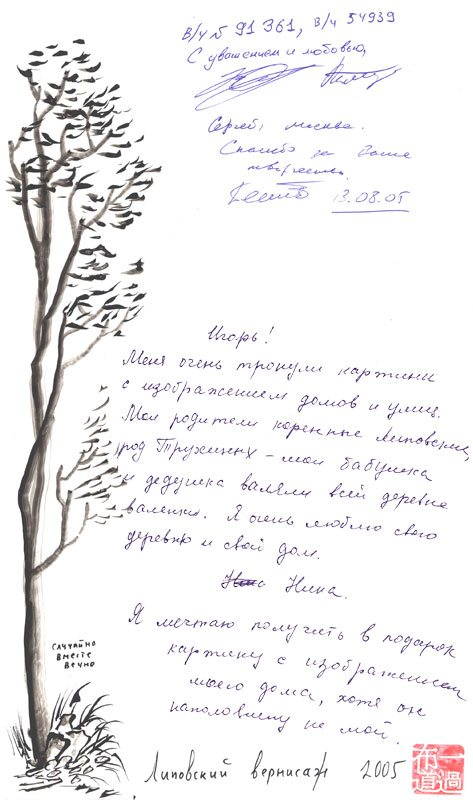 В/ч № 91 361, В/ч 54939
С уважением и любовью,
Сергей, Москва.
Спасибо за Ваше
творчество.
13.08.05
Игорь!
Меня очень тронули картины
с изображением домов и улиц.
Мои родители коренные Липовские,
род Трухиных - мои бабушка
и дедушка валяли всей деревне
валенки. Я очень люблю свою
деревню и свой дом.
Нина.
Я мечтаю получить в подарок
картину с изображением
моего дома, хотя он
наполовину не мой.
случайно
вместе
вечно
Липовский вернисаж 2005